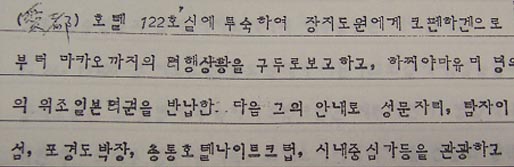 (愛都) 호텔 122호실에 투숙하여 장지도원에게 코펜하겐으로
부터 마카오까지의 려행상황을 구두로보고하고, 하찌야마유미 명의
의 위조일본려권을 반납한 다음 그의 안내로 성문자리, 탑자이
섬, 포경도박장, 총통호텔나이트크럽, 시내중심가등을 관광하고